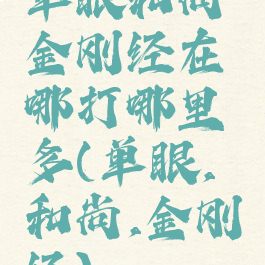 单眼和尚
金刚经在
哪打哪里
多(单眼,
和尚,金刚
经)